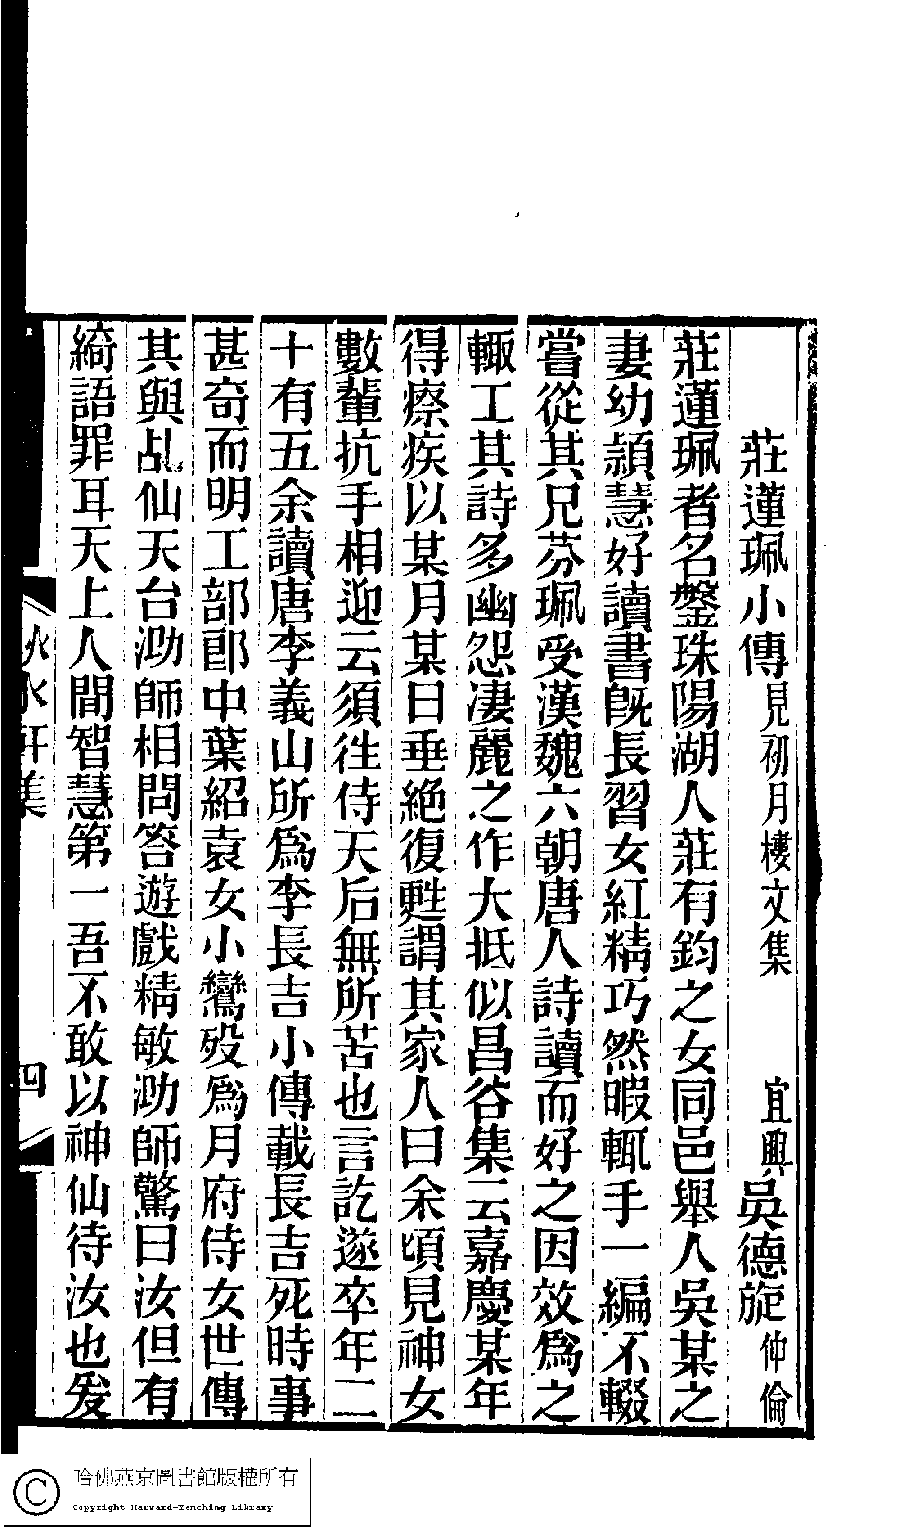 莊蓮珮小傳見初月樓文集 宜興吳德旋仲倫
莊蓮珮者名盤珠陽湖人莊有鈞之女同邑舉人吳某之
妻幼穎慧好讀書既長習女紅精巧然暇輒手一編不輟
嘗從其兄芬珮受漢魏六朝唐人詩讀而好之因效為之
輒工其詩多幽怨凄麗之作大抵似昌谷集云嘉慶某年
得瘵疾以某月某日垂絕復甦謂其家人曰余頃見神女
數輩抗手相迎云須往侍天后無所苦也言訖遂卒年二
十有五余讀唐李義山所為李長吉小傳載長吉死時事
甚奇而明工部郎中葉紹袁女小鸞歿為月府侍女世傳
其與乩仙天台泐師相問答遊戲精敏泐師驚曰汝但有
綺語罪耳天上人間智慧第一吾不敢以神仙待汝也爰
秋水軒集
四
哈佛燕京圖書館版權所有
Copyright Harvard-Yenching Library